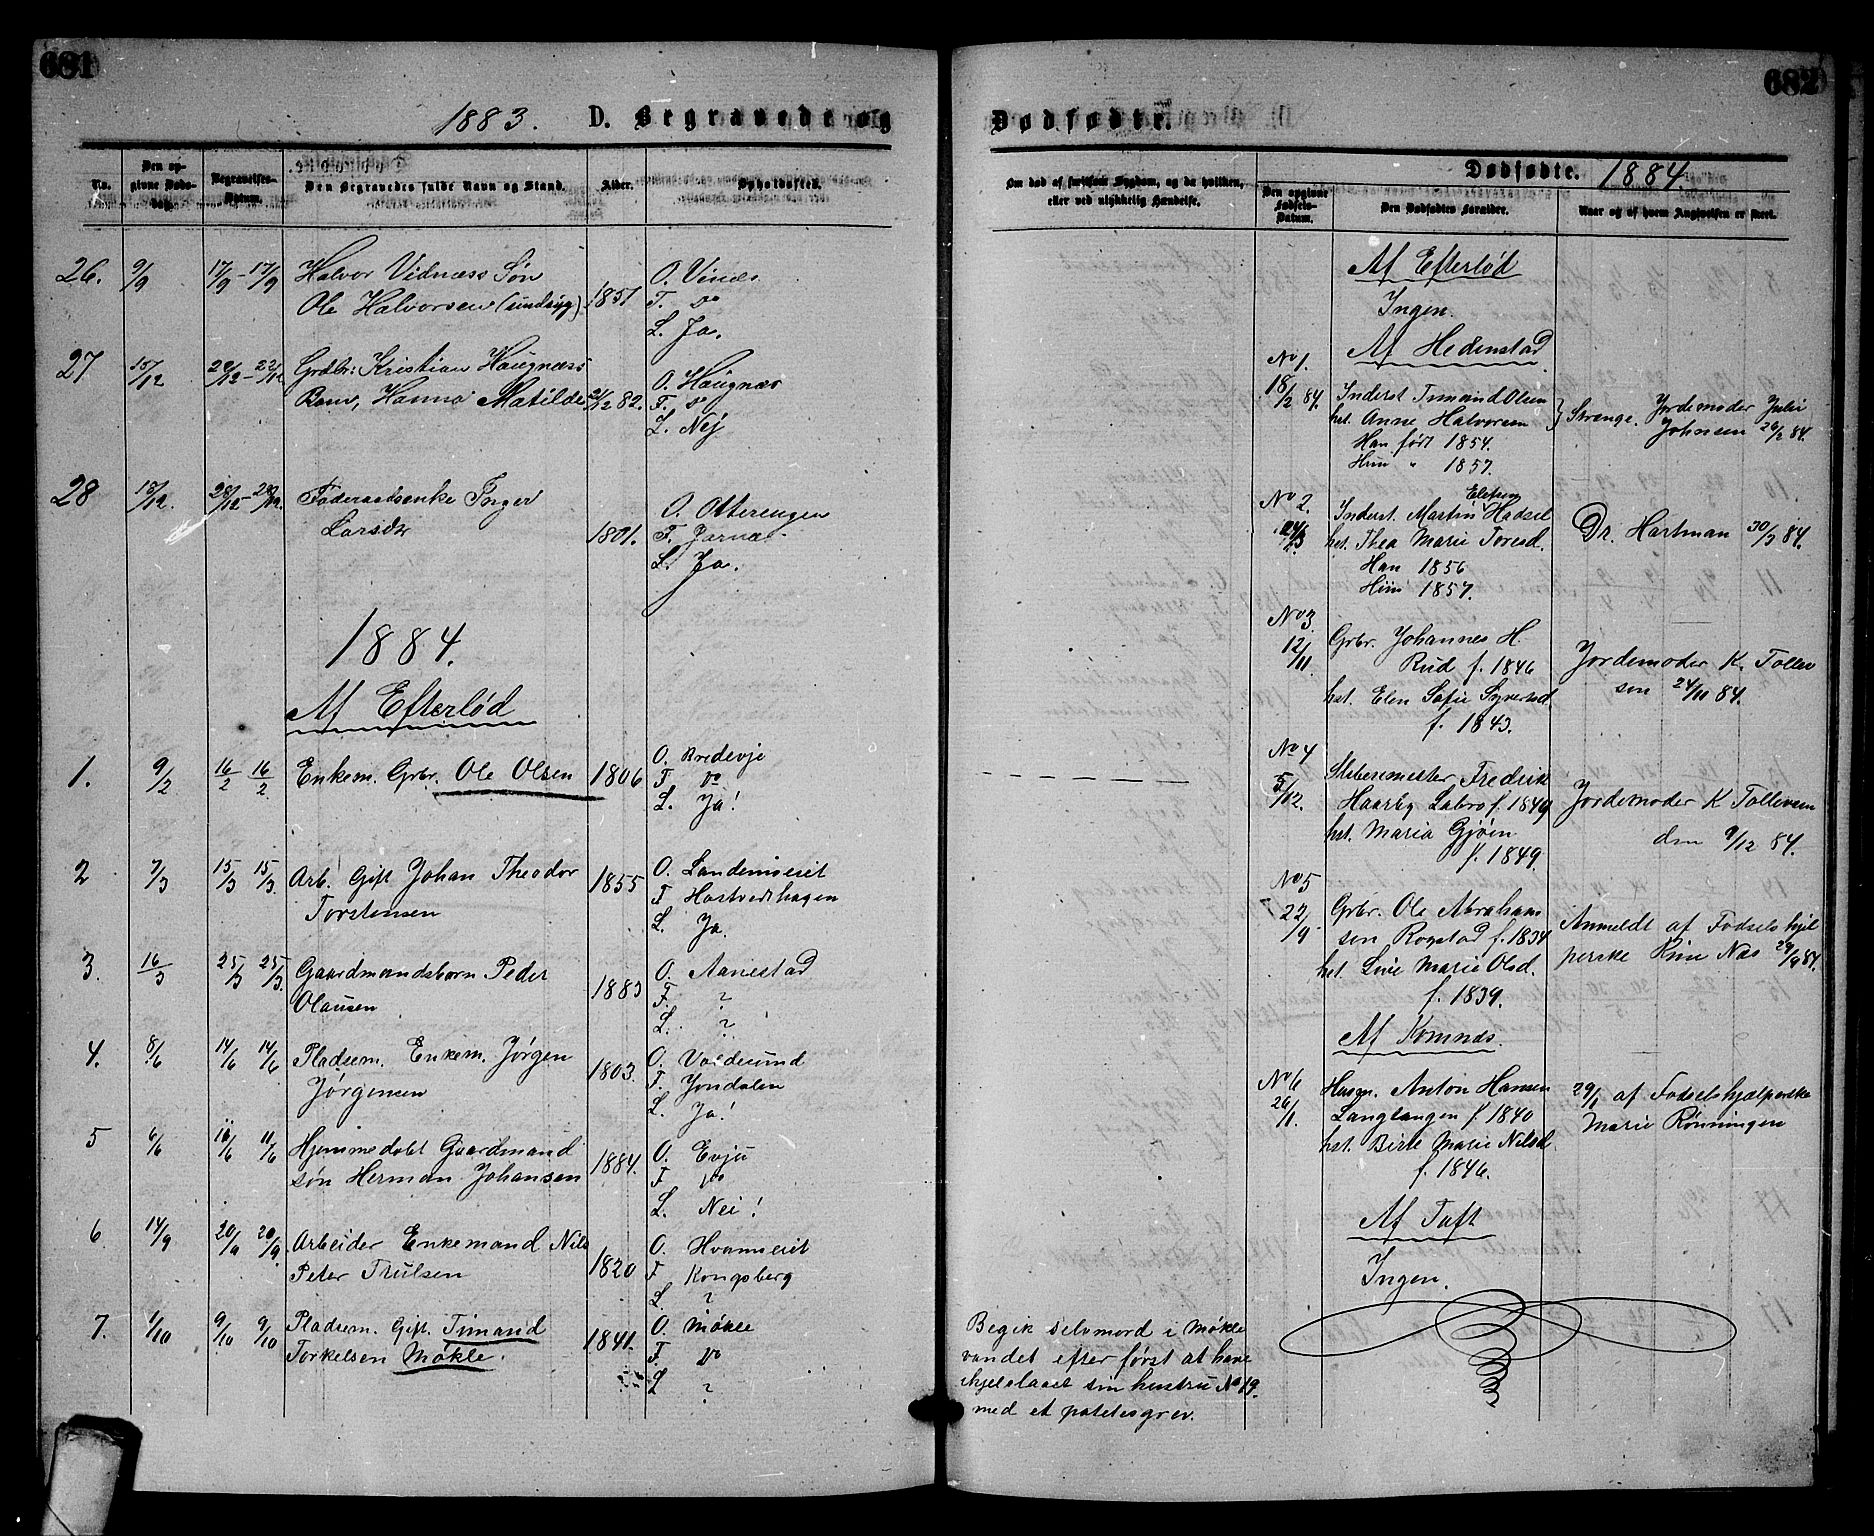 681
1883. D. Begravede og
No.
Den opgivne Dødsdag.
Begravelses-Datum.
Den Begravedes fulde Navn og Stand.
Alder.
Opholdssted.
26. 9/9 17/9 - 17/9 Halvor Vidnæss Søn 1851 O. Vinæs
Ole Halvorsen (sindsyg) F. do
L. Ja.
27 15/12 22/12 - 22/12 Grdbr: Kristian Haugnæss O. Haugnæs
Barn, Hanna Matilde 21/12 82. F. do
L. Nej
28 18/12. 28/12 - 28/12. Føderaadsenke Inger 1801. O. Otterengen
Larsdr F. Jarnæ
L. Ja.
1884.
Af Efterløð
1. 9/2 16/2 16/2 Enkem. Grbr. Ole Olsen 1806 O. Bredevje
F do
L. Ja!
2 7/3 15/3 15/3. Arb. Gift Johan Theodor 1855 O. Landemoeiet
Torstensen F Hostvedthagen
L. Ja.
3. 16/3 25/3 25/3. Gaardmandsbarn Peder 1883 O. Aanestad
Olausen F. ?
L. ?
4. 8/6 14/6 14/6 Pladsem. Enkem. Jørgen 1803. O. Valdesund
Jørgensen F. Jondalen
L. Ja!
5 6/6 11/6 11/6 Hjemmedøbt Gaardmand 1884. O. Evju
søn Herman Johansen F do
L. Nei!
6. 14/9 20/9 20/9. Arbeider Enkemand Nils 1820 O. Hvammeiet
Peter Trulsen F Kongsberg
L. ?
7. 1/10 9/10 9/10 Pladsem. Gift. Timand 1841. O. Møkle
Torkelsen Møkle. F. do
L ?
682
Dødfødte.
Om død af smitsom Sygdom, og da hvilken,
eller ved ulykkelig Hændelse.
Dødfødte. 1884.
Den opgivne Fødsels-Datum.
Den Dødfødtes Forældre.
Naar og af hvem Angivelsen er skeet.
Af Efterløð
Ingen.
Af Hedenstad
No 1.
18/2 84. Inderst Timand Olsen
hst. Anne Halvorsen } Strenge. Jordemoder Julie
Johnsen 26/2 84.
Han født 1854.
Hun " 1857.
No 2. Inderst. Martin Elefsen Hadsel
24/3 hst. Thea Marie Toresd. Dr. Hartman 30/3 84.
Han 1856
Hun 1857.
No 3.
12/11. Grbr. Johannes H.
Rud f. 1846 Jordemoder K. Tollev
hst. Elen Sofie Syversd. sen 24/11 84.
f. 1843.
No 4
5/12. Stebermester Fredrik
Haarby Labro f. 1849 Jordemoder K Tollevsen
hst. Maria Gjøen den 9/12 84.
f. 1849.
No 5
22/9. Grbr. Ole Abraham
sen Rogstad f. 1834 Anmeldt af Fødselshjel
hst. Live Marie Olsd. perske Kine Næs 29/9 84.
f. 1839.
Af Komnæs.
No 6
26/1. Husm. Anton Hansen 29/1 af Fødselshjælperske
Langlangen f 1840 Marie Rønningen
hst. Birte Marie Nilsd.
f. 1846.
Af Tuft
Ingen.
Begik selvmord i Møkle
vandet efter først at have
ihjelslaaet sin hustru No 19.
med et potetesgrev.